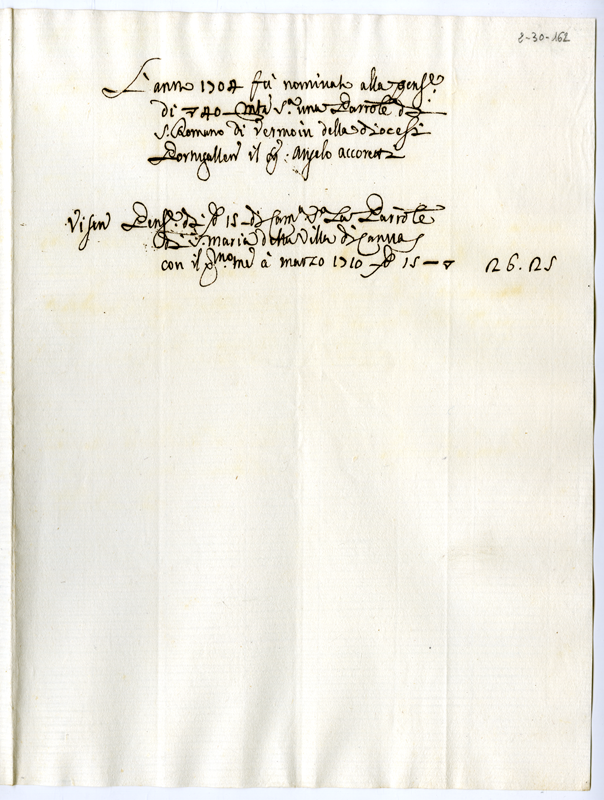 2-30-162
L'anno 1704 fù nominato alla pens.e
di 40 s.a una Parrole di
S. Romano di Vermoin della diocesi
Portugallen il Angelo accoretti
Visen Pens.e di 15 di Cam.a s.a La Parrole
di S. maria della Villa di Cannas
con il à marzo 1710 15 — 26.25